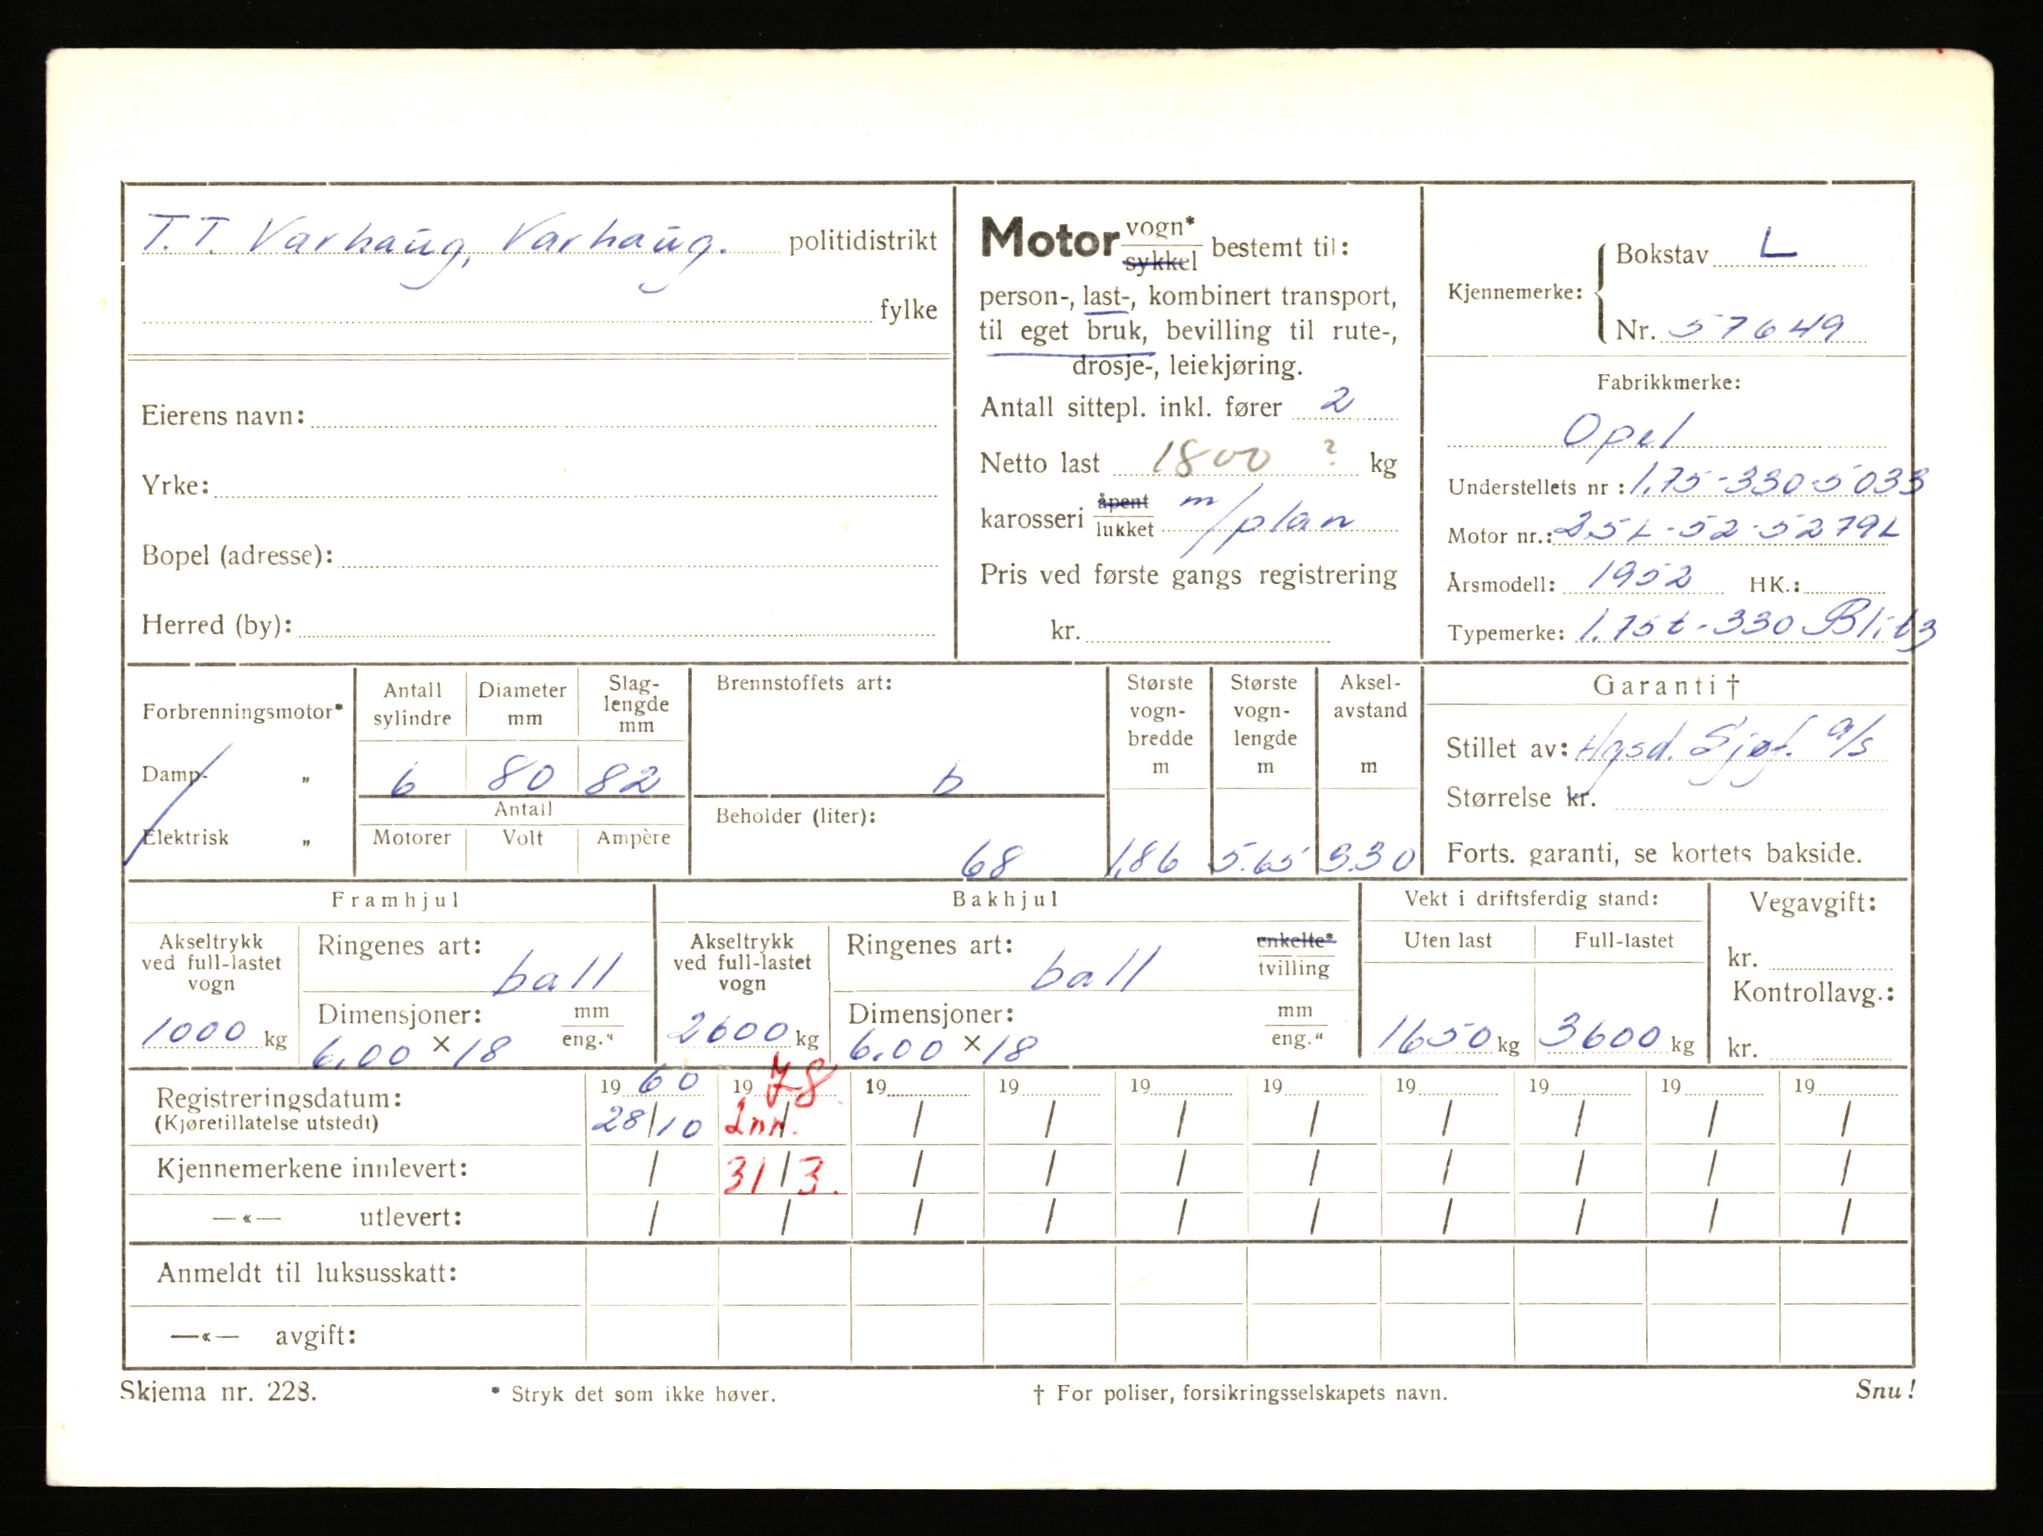 T.T. Varhaug, Varhaug. politidistrikt
fylke
Eierens navn:
Yrke:
Bopel (adresse):
Herred (by):
Motor vogn* sykkel bestemt til:
person-, last-, kombinert transport,
til eget bruk, bevilling til rute-,
drosje-, leiekjøring.
Antall sittepl. inkl. fører 2
Netto last 1800 ? kg
karosseri åpent lukket m/plan
Pris ved første gangs registrering
kr.
Kjennemerke: Bokstav L
Nr. 57649
Fabrikkmerke:
Opel
Understellets nr: 1.75-330-5033
Motor nr.: 25L-52-5279L
Årsmodell: 1952 HK.:
Typemerke: 1.75t-330 Blitz
Forbrenningsmotor*
Damp- „
Elektrisk „
Antall sylindre Diameter mm Slag-lengde mm
6 80 82
Antall
Motorer Volt Ampère
Brennstoffets art:
b
Beholder (liter):
68
Største vogn-bredde m
1,86
Største vogn-lengde m
5.65
Aksel-avstand m
3.30
Garanti †
Stillet av: Hgsd. Sjøf. a/s
Størrelse kr.
Forts. garanti, se kortets bakside.
Framhjul
Akseltrykk ved full-lastet vogn
1000 kg
Ringenes art:
ball
Dimensjoner: mm eng."
6.00 × 18
Bakhjul
Akseltrykk ved full-lastet vogn
2600 kg
Ringenes art: enkelte* tvilling
ball
Dimensjoner: mm eng."
6.00 × 18
Vekt i driftsferdig stand:
Uten last Full-lastet
1650 kg 3600 kg
Vegavgift:
kr.
Kontrollavg.:
kr.
Registreringsdatum: 19 60 19 78. 19 19 19 19 19 19 19 19
(Kjøretillatelse utstedt) 28/10 Inn. / / / / / / / / /
Kjennemerkene innlevert: / 31/3. / / / / / / / /
—«— utlevert: / / / / / / / / / /
Anmeldt til luksusskatt:
—«— avgift:
Skjema nr. 228. * Stryk det som ikke høver. † For poliser, forsikringsselskapets navn. Snu!